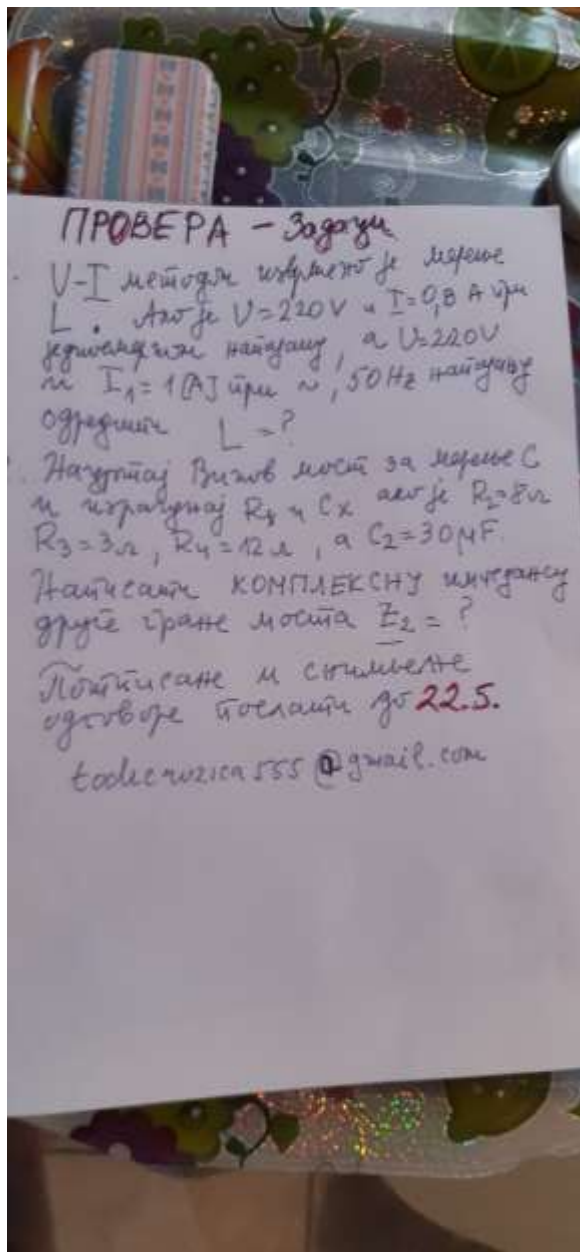 ПРОВЕРА - Задаци
U-I методом извршено је мерење
L. Ако је U=220V и I=0,8 A при
једносмерном напајању, а U=220V
и I₁=1[A] при ~, 50Hz напајању
одредити L=?
Нацртај Винов мост за мерење C
и израчунај Rₓ и Cx ако је R₂=8Ω
R₃=3Ω, R₄=12Ω, а C₂=30μF.
Написати КОМПЛЕКСНУ импедансу
друге гране моста Z₂=?
Потписане и снимљене
одговоре послати до 22.5.
@gmail.com